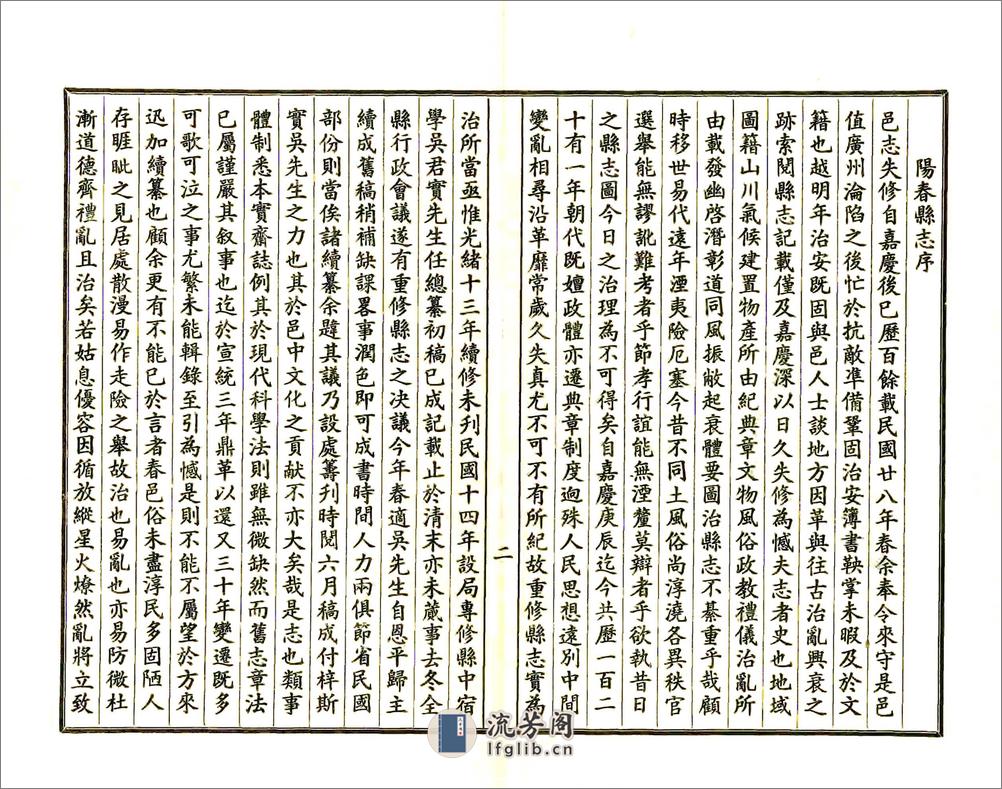 陽春縣志序
邑志失修自嘉慶後已歷百餘載民國廿八年春余奉令來守是邑
值廣州淪陷之後忙於抗敵準備鞏固治安簿書鞅掌未暇及於文
籍也越明年治安既固與邑人士談地方因革與往古治亂興衰之
跡索閱縣志記載僅及嘉慶深以日久失修為憾夫志者史也地域
圖籍山川氣候建置物產所由紀典章文物風俗政教禮儀治亂所
由載發幽啓潛彰道同風振敝起衰體要圖治縣志不綦重乎哉顧
時移世易代遠年湮夷險厄塞今昔不同土風俗尚淳澆各異秩官
選舉能無謬訛難考者乎節孝行誼能無湮釐莫辯者乎欲執昔日
之縣志圖今日之治理為不可得矣自嘉慶庚辰迄今共歷一百二
十有一年朝代既嬗政體亦遷典章制度逈殊人民思想遠別中間
變亂相尋沿革靡常歲久失真尤不可不有所紀故重修縣志實為
二
治所當亟惟光緒十三年續修未刋民國十四年設局專修縣中宿
學吳君實先生任總纂初稿已成記載止於清末亦未蕆事去冬全
縣行政會議遂有重修縣志之決議今年春適吳先生自恩平歸主
續成舊稿稍補缺誤畧事潤色即可成書時間人力兩俱節省民國
部份則當俟諸續纂余韙其議乃設處籌刋時閱六月稿成付梓斯
實吳先生之力也其於邑中文化之貢献不亦大矣哉是志也類事
體制悉本實齋誌例其於現代科學法則雖無微缺然而舊志章法
已屬謹嚴其叙事也迄於宣統三年鼎革以還又三十年變遷既多
可歌可泣之事尤繁未能輯錄至引為憾是則不能不屬望於方來
迅加續纂也顧余更有不能已於言者春邑俗未盡淳民多固陋人
存睚眦之見居處散漫易作走險之舉故治也易亂也亦易防微杜
漸道德齊禮亂且治矣若姑息優容因循放縱星火燎然亂將立致
流芳阁
lfglib.cn